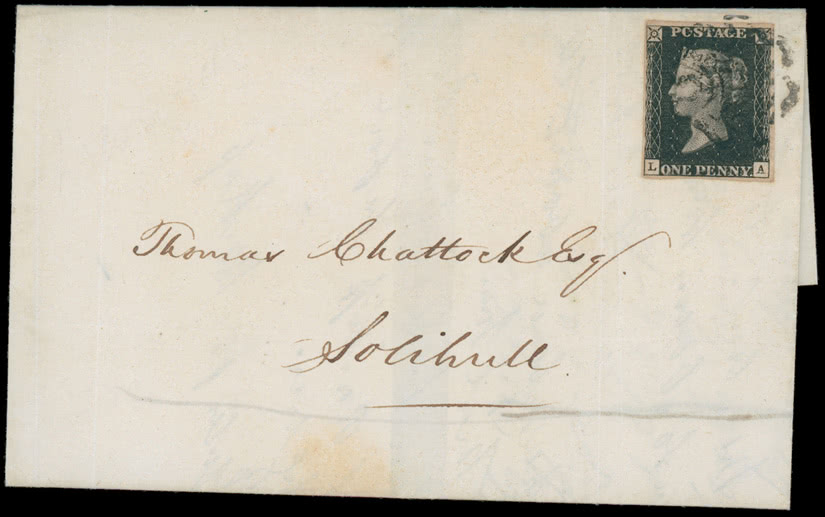 POSTAGE
L ONE PENNY. A
Thomas Chattock Esq.
Solihull.